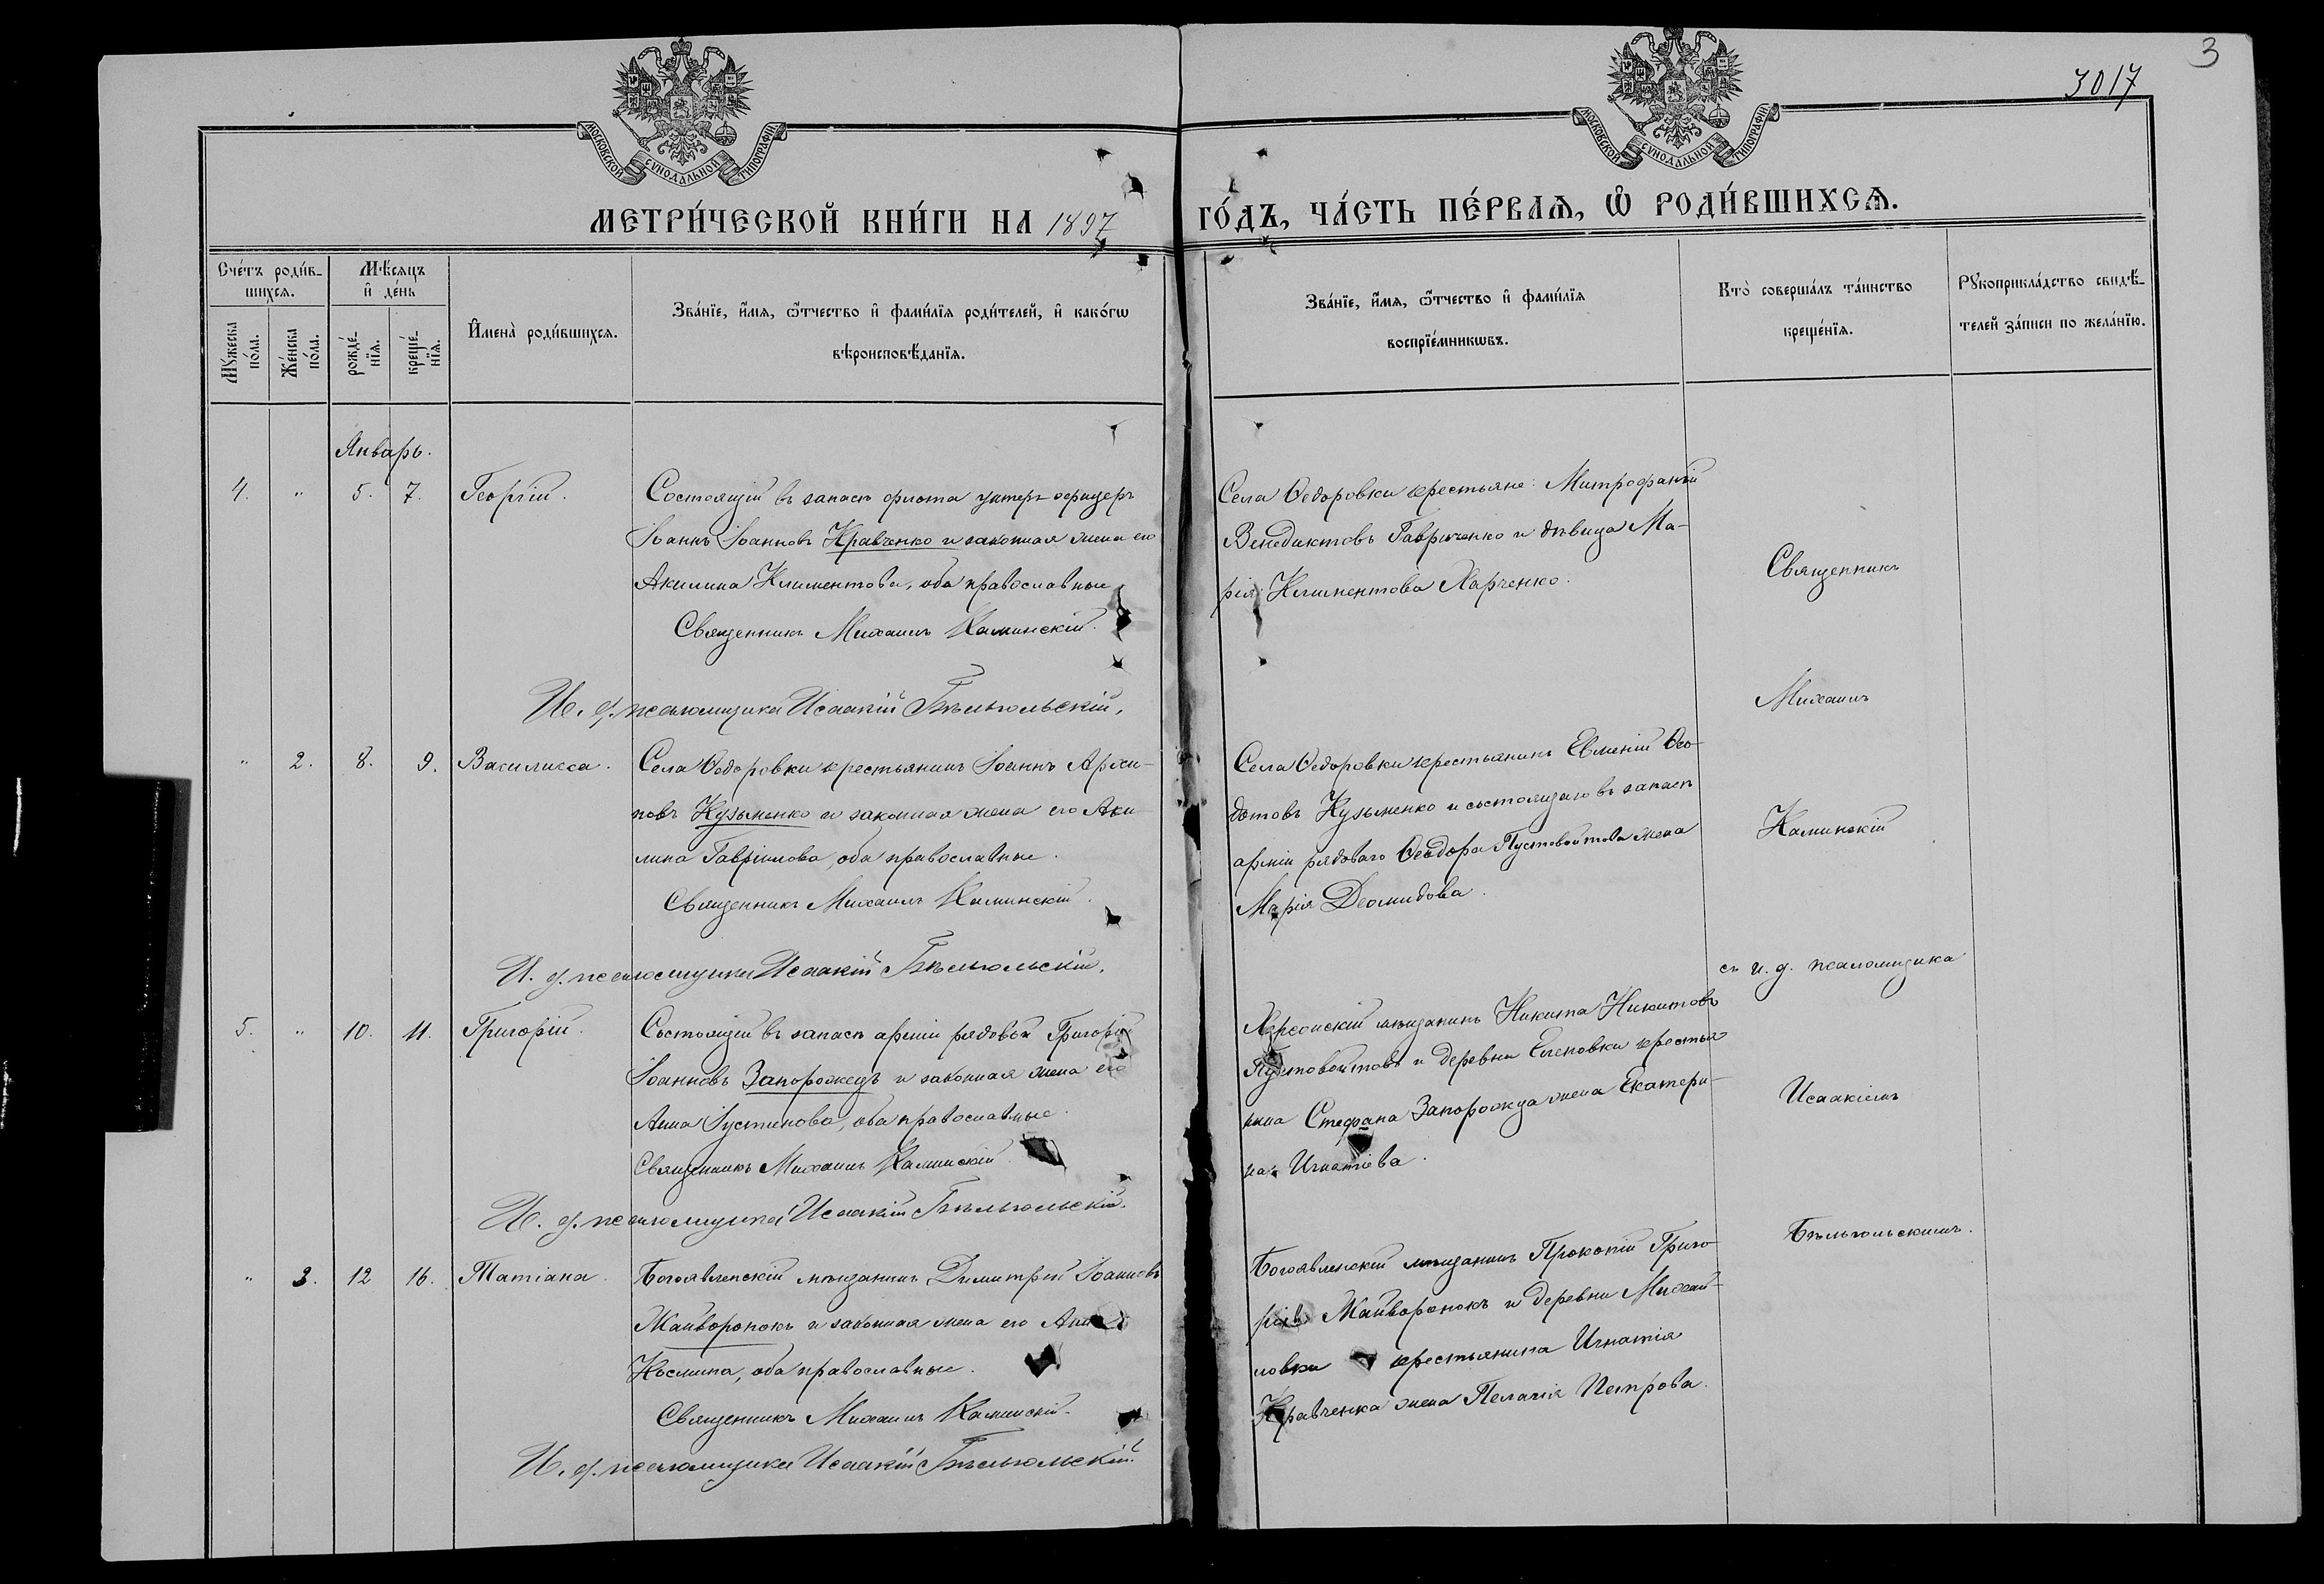 3
3017
МОСКОВСКОЙ СѴНОДАЛЬНОЙ ТИПОГРАФІИ
МОСКОВСКОЙ СѴНОДАЛЬНОЙ ТИПОГРАФІИ
МЕТРИ́ЧЕСКОЙ КНИ́ГИ НА 1897 ГО́ДЪ, ЧА́СТЬ ПЕ́РВАѦ, Ѡ҆ РОДИ́ВШИХСѦ.
Сче́тъ роди́в-
шихсѧ.
Мꙋ́жеска по́ла.
Же́нска по́ла.
Мѣ́сѧцъ
и҆ де́нь
рожде́-
нїѧ.
креще́-
нїѧ.
И҆мена̀ роди́вшихсѧ.
Зва́нїе, и҆́мѧ, ѻ҆́тчество и҆ фами́лїѧ роди́телей, и҆ како́гѡ
вѣроисповѣ́данїѧ.
Зва́нїе, и҆́мѧ, ѻ҆́тчество и҆ фами́лїѧ
воспрїе́мникѡвъ.
Кто̀ соверша́лъ та́инство
креще́нїѧ.
Рꙋкоприкла́дство свидѣ́-
телей за́писи по жела́нїю.
Январь.
4. " 5. 7. Георгій.
Состоящій въ запасѣ флота унтеръ-офицеръ
Іоаннъ Іоанновъ Кравченко и законная жена его
Акилина Климентова, оба православные
Священникъ Михаилъ Каминскій.
И. д. псаломщика Исаакій Бѣльгольскій.
Села Ѳедоровки крестьяне: Митрофаній
Венедиктовъ Гавриченко и дѣвица Ма-
рія Климентова Харченко.
Священникъ
Михаилъ
" 2. 8. 9. Василисса.
Села Ѳедоровки крестьянинъ Іоаннъ Архи-
повъ Кузьменко и законная жена его Аки-
лина Гавріилова, оба православные.
Священникъ Михаилъ Каминскій.
И. д. псаломщика Исаакій Бѣльгольскій.
Села Ѳедоровки крестьянинъ Евменій Ѳео-
дотовъ Кузьменко и состоящаго въ запасѣ
арміи рядоваго Ѳеодора Пустовойтова жена
Марія Деомидова.
Каминскій
съ и. д. псаломщика
5. " 10. 11. Григорій.
Состоящій въ запасѣ арміи рядовой Григорій
Іоанновъ Запорожецъ и законная жена его
Анна Іустинова, оба православные.
Священникъ Михаилъ Каминскій.
И. д. псаломщика Исаакій Бѣльгольскій.
Херсонскій мѣщанинъ Никита Никитовъ
Пустовойтовъ и деревни Еленовки крестья-
нина Стефана Запорожца жена Екатери-
на Игнатіева.
Исаакіемъ
Бѣльгольскимъ.
" 3. 12 16. Татіана.
Богоявленскій мѣщанинъ Димитрій Іоанновъ
Жайворонокъ и законная жена его
Косьмина, оба православные.
Священникъ Михаилъ Каминскій.
И. д. псаломщика Исаакій Бѣльгольскій.
Богоявленскій мѣщанинъ Прокопій Григо-
ріевъ Жайворонокъ и деревни Михай-
ловки крестьянина Игнатія
Кравченка жена Пелагія Петрова.